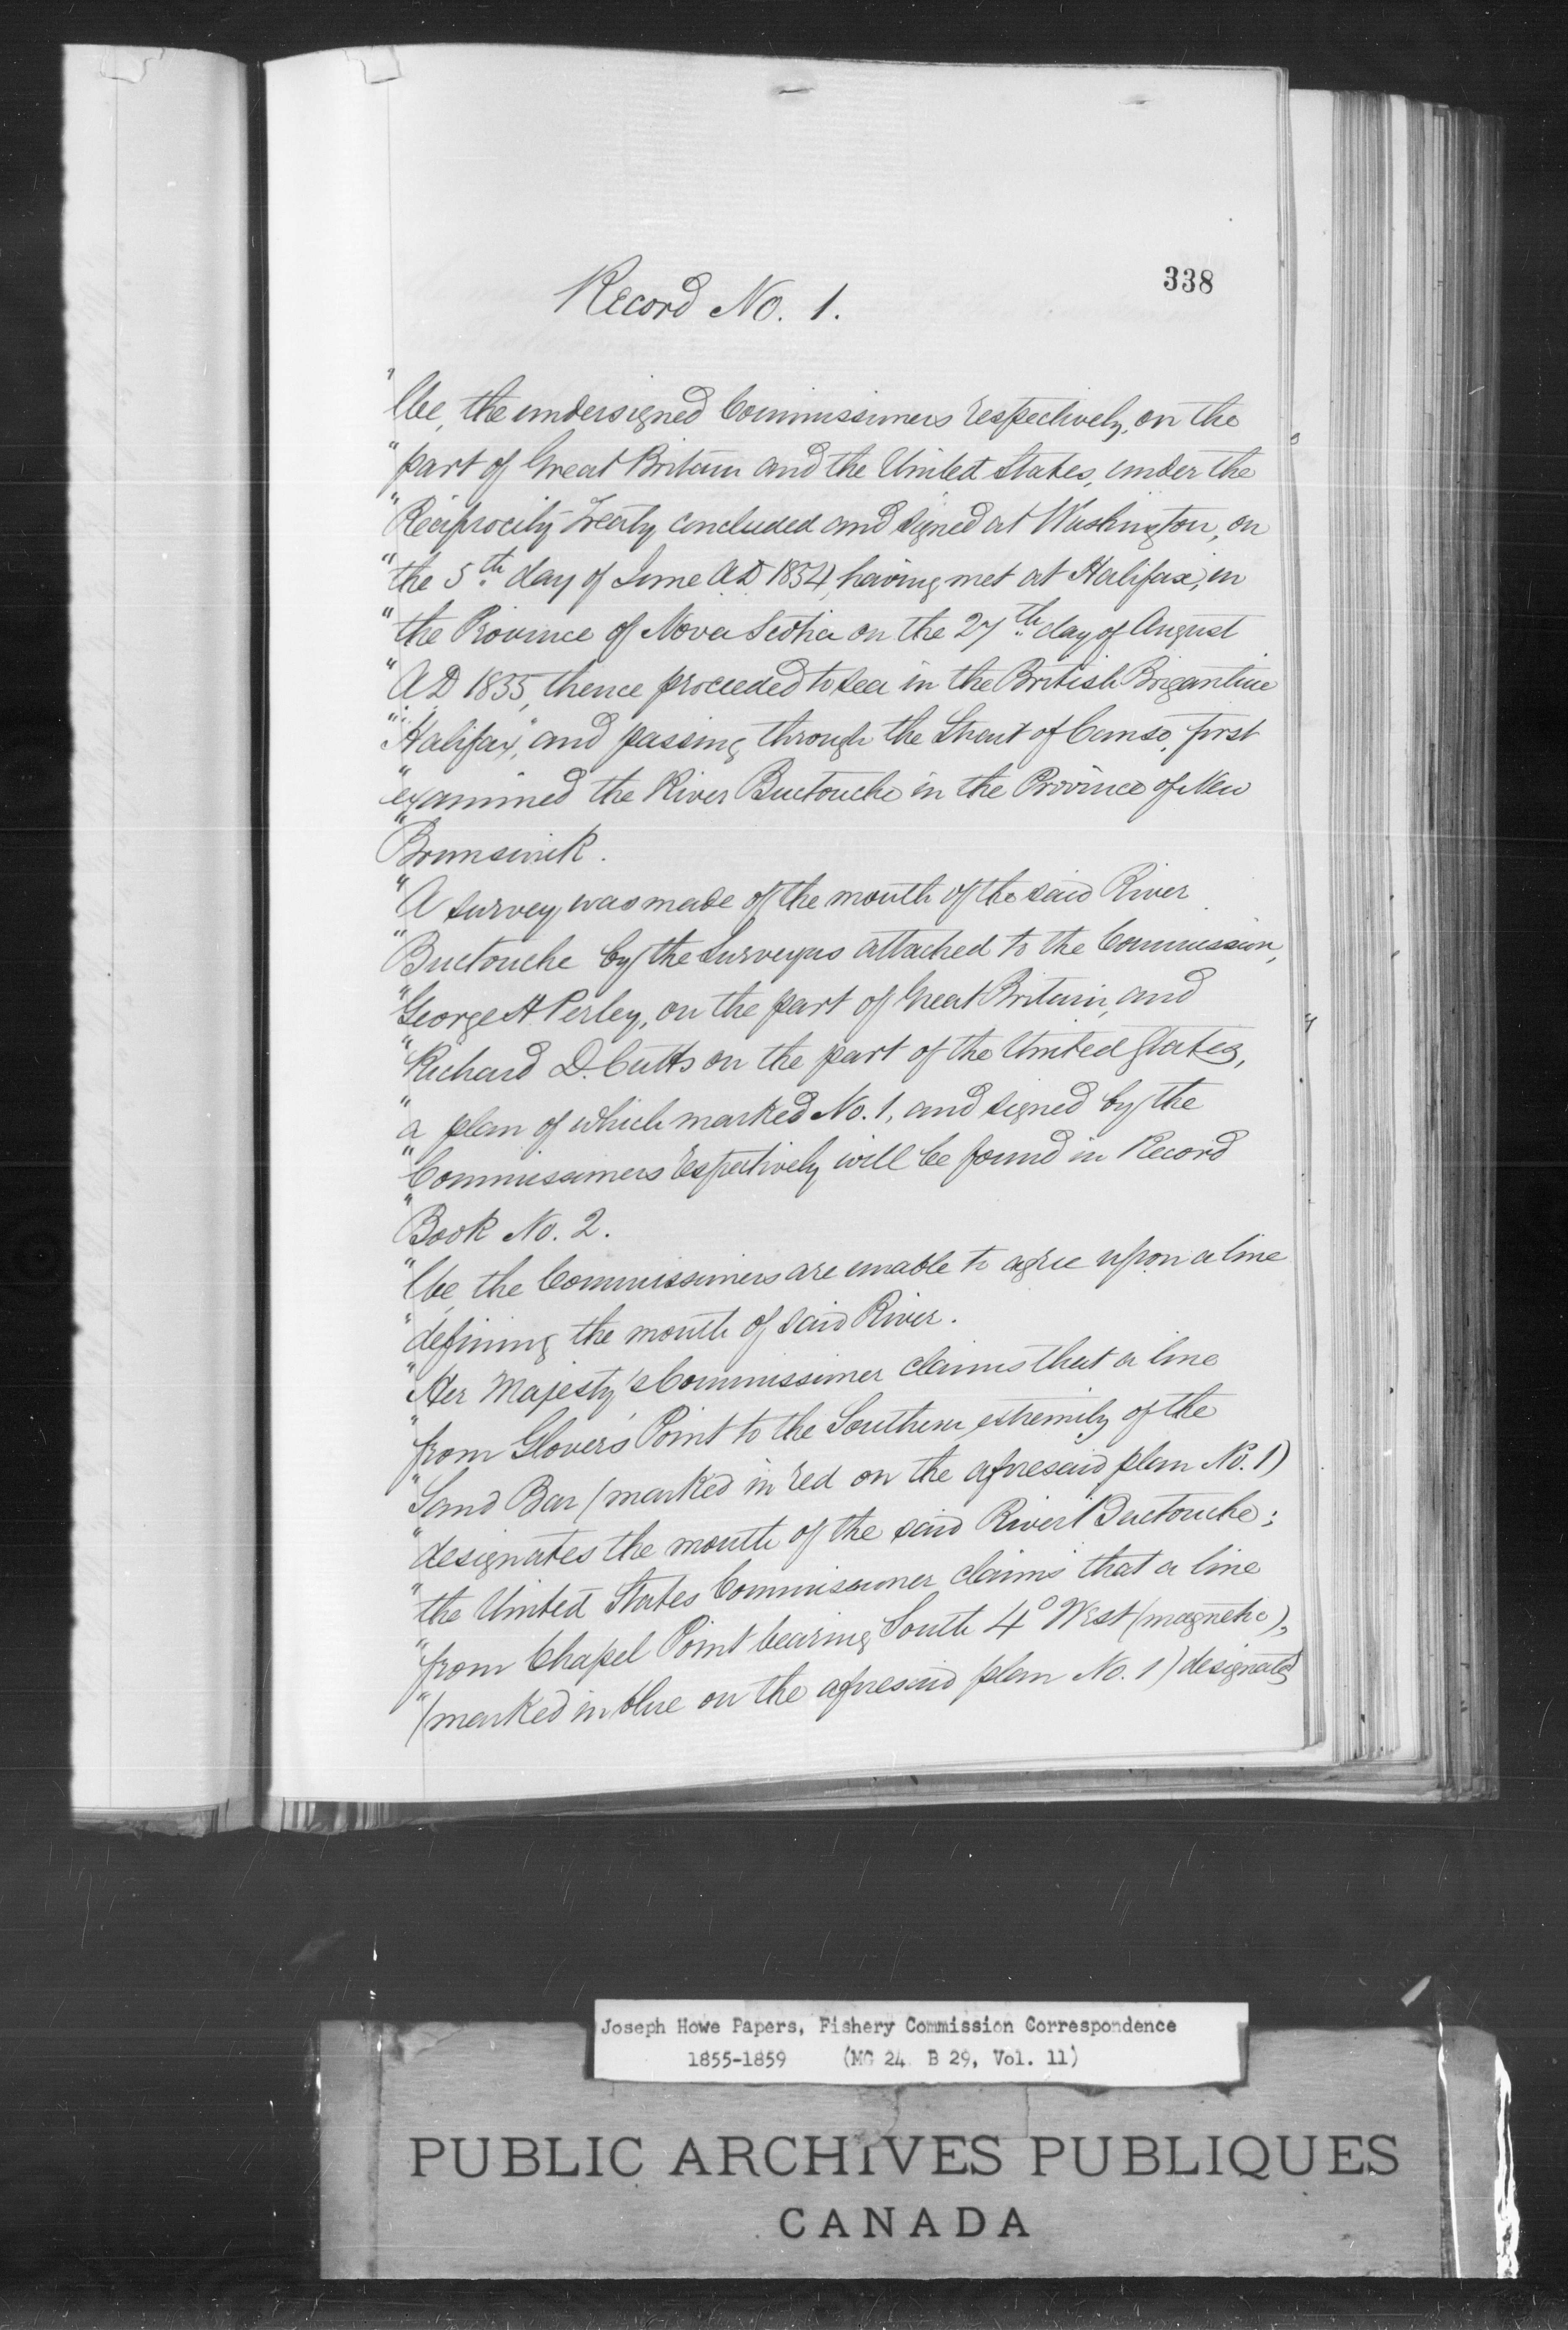 338
Record No. 1.
"We, the undersigned Commissioners respectively, on the
"part of Great Britain and the United States, under the
"Reciprocity Treaty concluded and signed at Washington, on
"the 5th day of June A.D 1854, having met at Halifax, in
"the Province of Nova Scotia on the 27th day of August
"A.D. 1855, thence proceeded to sea in the British Brigantine
"Halifax," and passing through the Strait of Canso, first
"examined the River Buctouche in the Province of New
"Brunswick.
"A survey was made of the mouth of the said River
"Buctouche by the Surveyors attached to the Commission,
"George H. Perley, on the part of Great Britain, and
"Richard D. Cutts on the part of the United States,
"a plan of which marked No. 1, and signed by the
"Commissioners respectively will be found in Record
"Book No. 2.
"We, the Commissioners are unable to agree upon a line
"defining the mouth of said River.
"Her Majesty's Commissioner claims that a line
"from Glover's Point to the Southern extremity of the
"Sand Bar (marked in red on the aforesaid plan No. 1)
"designates the mouth of the said River Buctouche;
"the United States Commissioner claims that a line
"from Chapel Point bearing South 4° West (magnetic),
"(marked in blue on the aforesaid plan No. 1) designates
Joseph Howe Papers, Fishery Commission Correspondence
1855-1859 (MG 24 B 29, Vol. 11)
PUBLIC ARCHIVES PUBLIQUES
CANADA